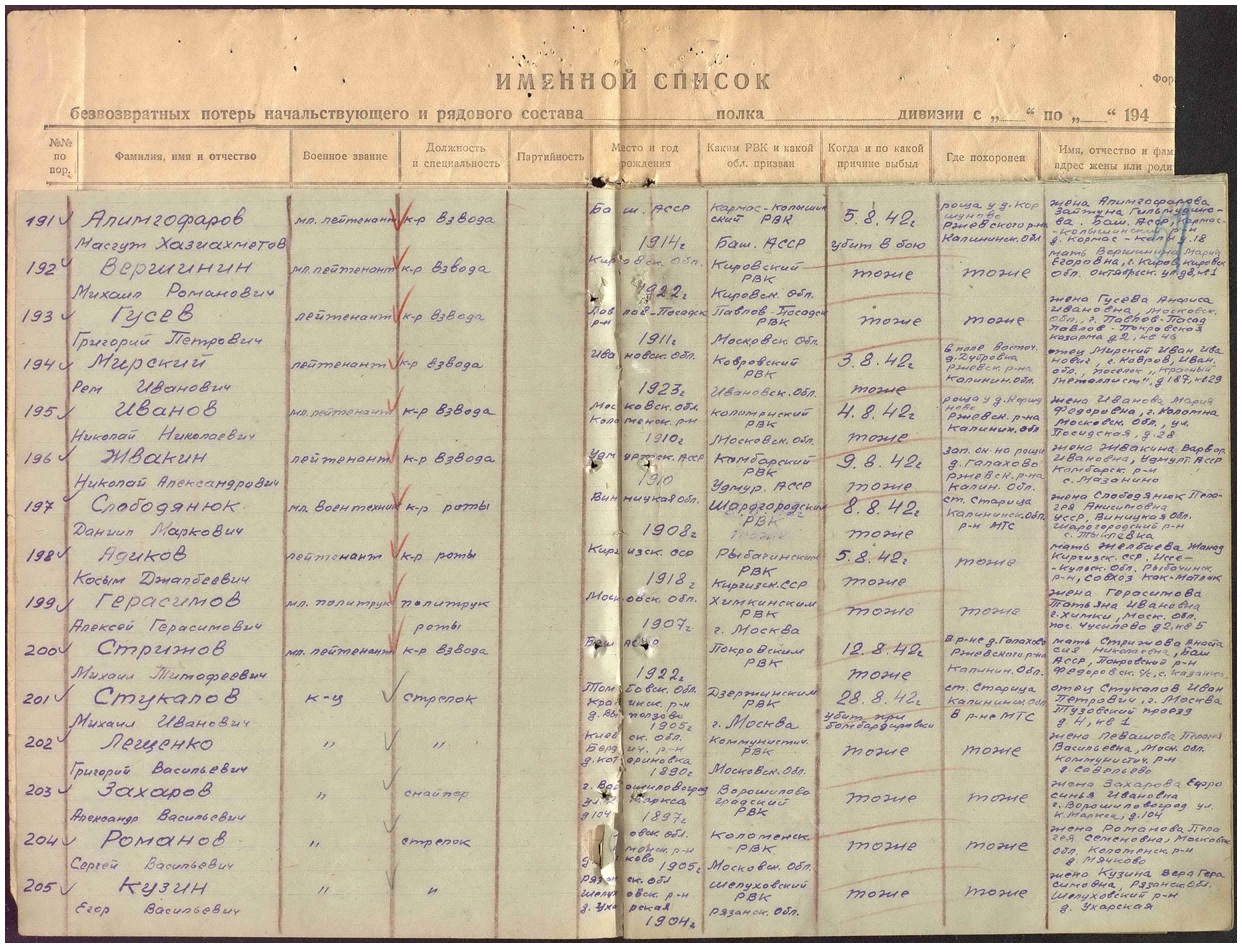 ИМЕННОЙ СПИСОК
безвозвратных потерь начальствующего и рядового состава полка дивизии с „ “ по „ “ 194
№№ по пор.
Фамилия, имя и отчество
Военное звание
Должность и специальность
Партийность
Место и год рождения
Каким РВК и какой обл. призван
Когда и по какой причине выбыл
Где похоронен
Имя, отчество и фам адрес жены или роди
191 Алимгофаров мл. лейтенант к-р взвода Баш. АССР Кармас-Калышин 5.8.42г роща у д. Кор жена Алимгофарова
ский РВК шуново Зайтуна
Ржевского р-на ва. Баш. АССР, Кармас-
Масгут Хазиахметов 1914г Баш. АССР убит в бою Калининск. Обл
192 Вершинин мл. лейтенант к-р взвода Кировск. Обл. Кировский тоже тоже мать Вершинина Мария
РВК Егоровна, г. Киров, Кировск
Михаил Романович 1922г Кировск. Обл. обл. Октябрьск. ул
193 Гусев лейтенант к-р взвода Павлов-Посадск Павлов-Посадск тоже тоже жена Гусева Анфиса
р-н РВК Ивановна, Московск.
обл., г. Павлов-Посад
Павлов-Покровская
Григорий Петрович 1911г Московск. Обл. казарма д 2, кв 46
194 Мирский лейтенант к-р взвода Ивановск. обл. Ковровский 3.8.42г в поле восточ. отец Мирский Иван Ива
РВК д. Дубровка нович, г. Ковров, Иван.
Ржевск. р-на обл., поселок „Красный
Рем Иванович 1923г Ивановск. Обл. тоже Калинин. обл. металлист“, д 187, кв 29
195 Иванов мл. лейтенант к-р взвода Московск. Обл. Коломенский 4.8.42г роща у д. Корш жена Иванова Мария
Коломенск. р-н РВК ново Федоровна, г. Коломна
Ржевск. р-на Московск. Обл., ул.
Николай Николаевич 1910г Московск. Обл. тоже Калинин. обл Посадская, д-28
196 Жвакин лейтенант к-р взвода Удмуртск. АССР Камбарский 9.8.42г зап. ок-на рощи жена Жвакина Варвар.
РВК д. Галахово Ивановна, Удмурт. АССР
Ржевск. р-на Камбарск. р-н
Николай Александрович 1910 Удмур. АССР тоже Калин. Обл. с. Мазанино
197 Слободянюк мл. воентехник к-р роты Винницкая обл. Шаргородским 8.8.42г ст. Старица жена Слободянюк Пела-
РВК Калининск. Обл гея Анисимовна
р-н МТС УССР, Виницкая Обл.
Шарогородский р-н
Даниил Маркович 1908г тоже
198 Адиков лейтенант к-р роты Киргизск. ССР Рыбачинским 5.8.42г тоже мать Желбаева
РВК Киргизск. ССР, Иссы-
-Кульск. Обл. Рыбачинск.
Косым Джалбеевич 1918г Киргизск. ССР тоже р-н, совхоз
199 Герасимов мл. политрук политрук Московск. обл. Химкинским тоже тоже жена Герасимова
РВК Татьяна Ивановна
г. Химки, Моск. обл.
Алексей Герасимович роты 1907г г. Москва
200 Стрижов мл. лейтенант к-р взвода Баш АССР Покровским 12.8.42г в р-не д. Галахово мать Стрижова
РВК Ржевского р-на сия Николаевна, Баш
АССР, Покровский р-н
Михаил Тимофеевич 1922г тоже Калинин. Обл.
201 Стукалов к-ц стрелок Тамбовск. Обл. Дзержинским 28.8.42г ст. Старица отец Стукалов Иван
РВК Калининск. Обл Петрович, г. Москва
убит при в р-не МТС Тузовский проезд
Михаил Иванович 1905г г. Москва бомбардировки д. 4, кв 1
202 Лещенко „ „ Киевск. обл. Коммунистич. тоже тоже жена Левашова
Бердич. р-н РВК Васильевна, Моск. Обл
коммунистич. р-н
Григорий Васильевич 1890г Московск. Обл. д. Савельево
203 Захаров „ снайпер г. Ворошиловоград Ворошилово тоже тоже жена Захарова Евфро
ул. К. Маркса градский синья Ивановна
д 104 РВК г. Ворошиловоград ул.
Александр Васильевич 1897г К. Маркса, д. 104
204 Романов „ стрелок овск. обл. Коломенск тоже тоже жена Романова Пела
РВК гея Семеновна, Московск
обл. Коломенск р-н
Сергей Васильевич 1905г Московск. Обл. д. Мячково
205 Кузин „ „ Рязанск. Обл Шелуховский тоже тоже жена Кузина Вера Гера
Шелуховск. р-н РВК симовна, Рязанск Обл.
д. Ухарская Шелуховский р-н
Егор Васильевич 1904г Рязанск. Обл. д. Ухарская